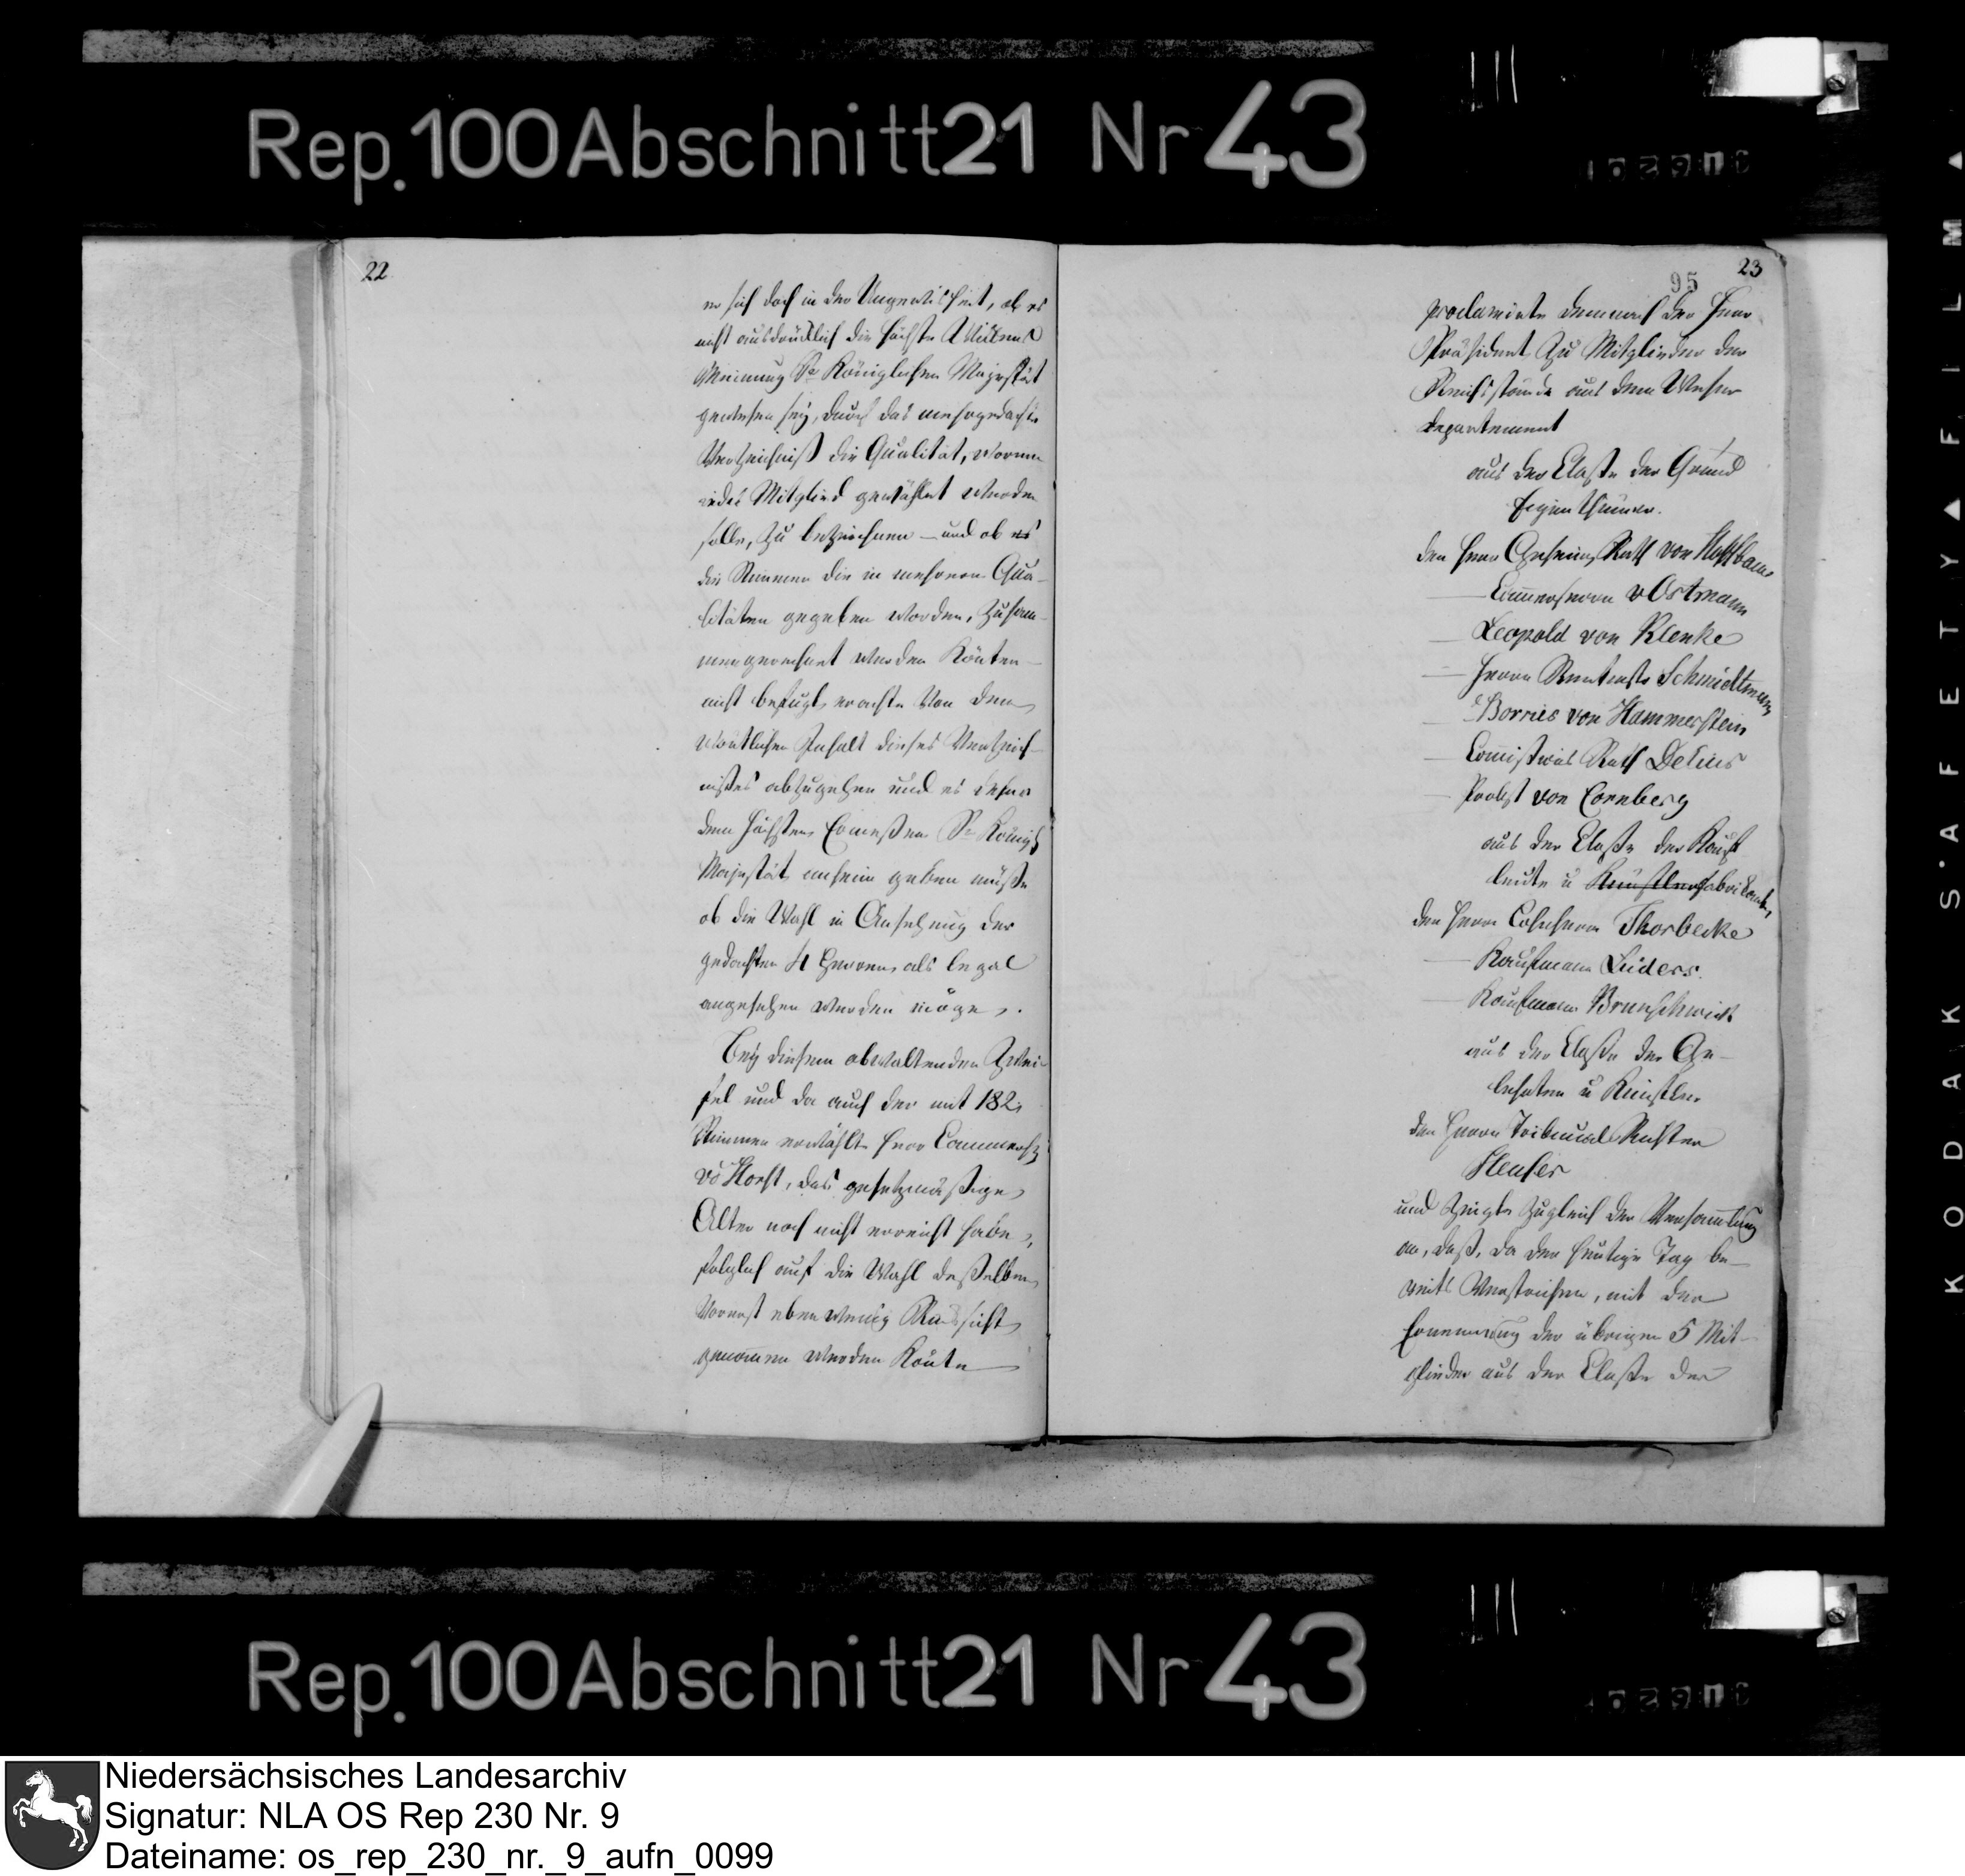 Rep. 100 Abschnitt 21 Nr 43
22
er sich doch in der Ungewisheit, ob es
nicht ausdrücklich die höchste Willens
Meinung Sr Königlichen Majestät
gewesen sey, durch das mehrgedachte
Verzeichniß die Qualität, worinn
jedes Mitglied gewählet werden
solle, zu bezeichnen – und ob es
die Stimmen die in mehreren Qua-
litäten gegeben worden, zusam-
mengerechnet werden könten –
nicht befugt erachte von dem
wörtlichen Inhalt dieses Verzeich-
nißes abzugehen und es daher
dem höchsten Ermeßen Sr Königl
Majestät anheim geben müße
ob die Wahl in Ansehung der
gedachten 4 Herren als legal
angesehen werden möge.
Bey diesem obwaltenden Zwei-
fel und da auch der mit 182
Stimmen erwählte Herr Cammerh
vo Horst, das gesetzmäßige
Alter noch nicht erreicht habe,
folglich auf die Wahl deßelben
vorerst eben wenig Rücksicht
genommen werden könte
95
23
proclamirte demnach der Herr
Präsident zu Mitglieder der
Reichsstände aus dem Weser
departement
aus der Claße der Grund
Eigenthümer.
den Herr Geheime Rath von Haffbaur
— Cammerherrn v Ostmann
— Leopold von Klenke
— Herrn Rentmstr Schmidtmann
— Borries von Hammerstein
— Comißions Rath Delius
— Probst von Cornberg
aus der Claße der Kauf
leute u Künstler Fabrikanten,
den Herrn Thorbecke
— Kaufmann Lüders.
Kaufmann Brunschwick
aus der Claße der Ge-
lehrten u Künstler
den Herrn Tribunal Richter
Heuser
und zeigte zugleich der Versamlung
an, daß, da der heutige Tag be-
reits verstrichen, mit der
Ernennung der übrigen 5 Mit-
glieder aus der Claße der
KODAK SAFETY FILM
Rep. 100 Abschnitt 21 Nr 43
Niedersächsisches Landesarchiv
Signatur: NLA OS Rep 230 Nr. 9
Dateiname: os_rep_230_nr._9_aufn_0099